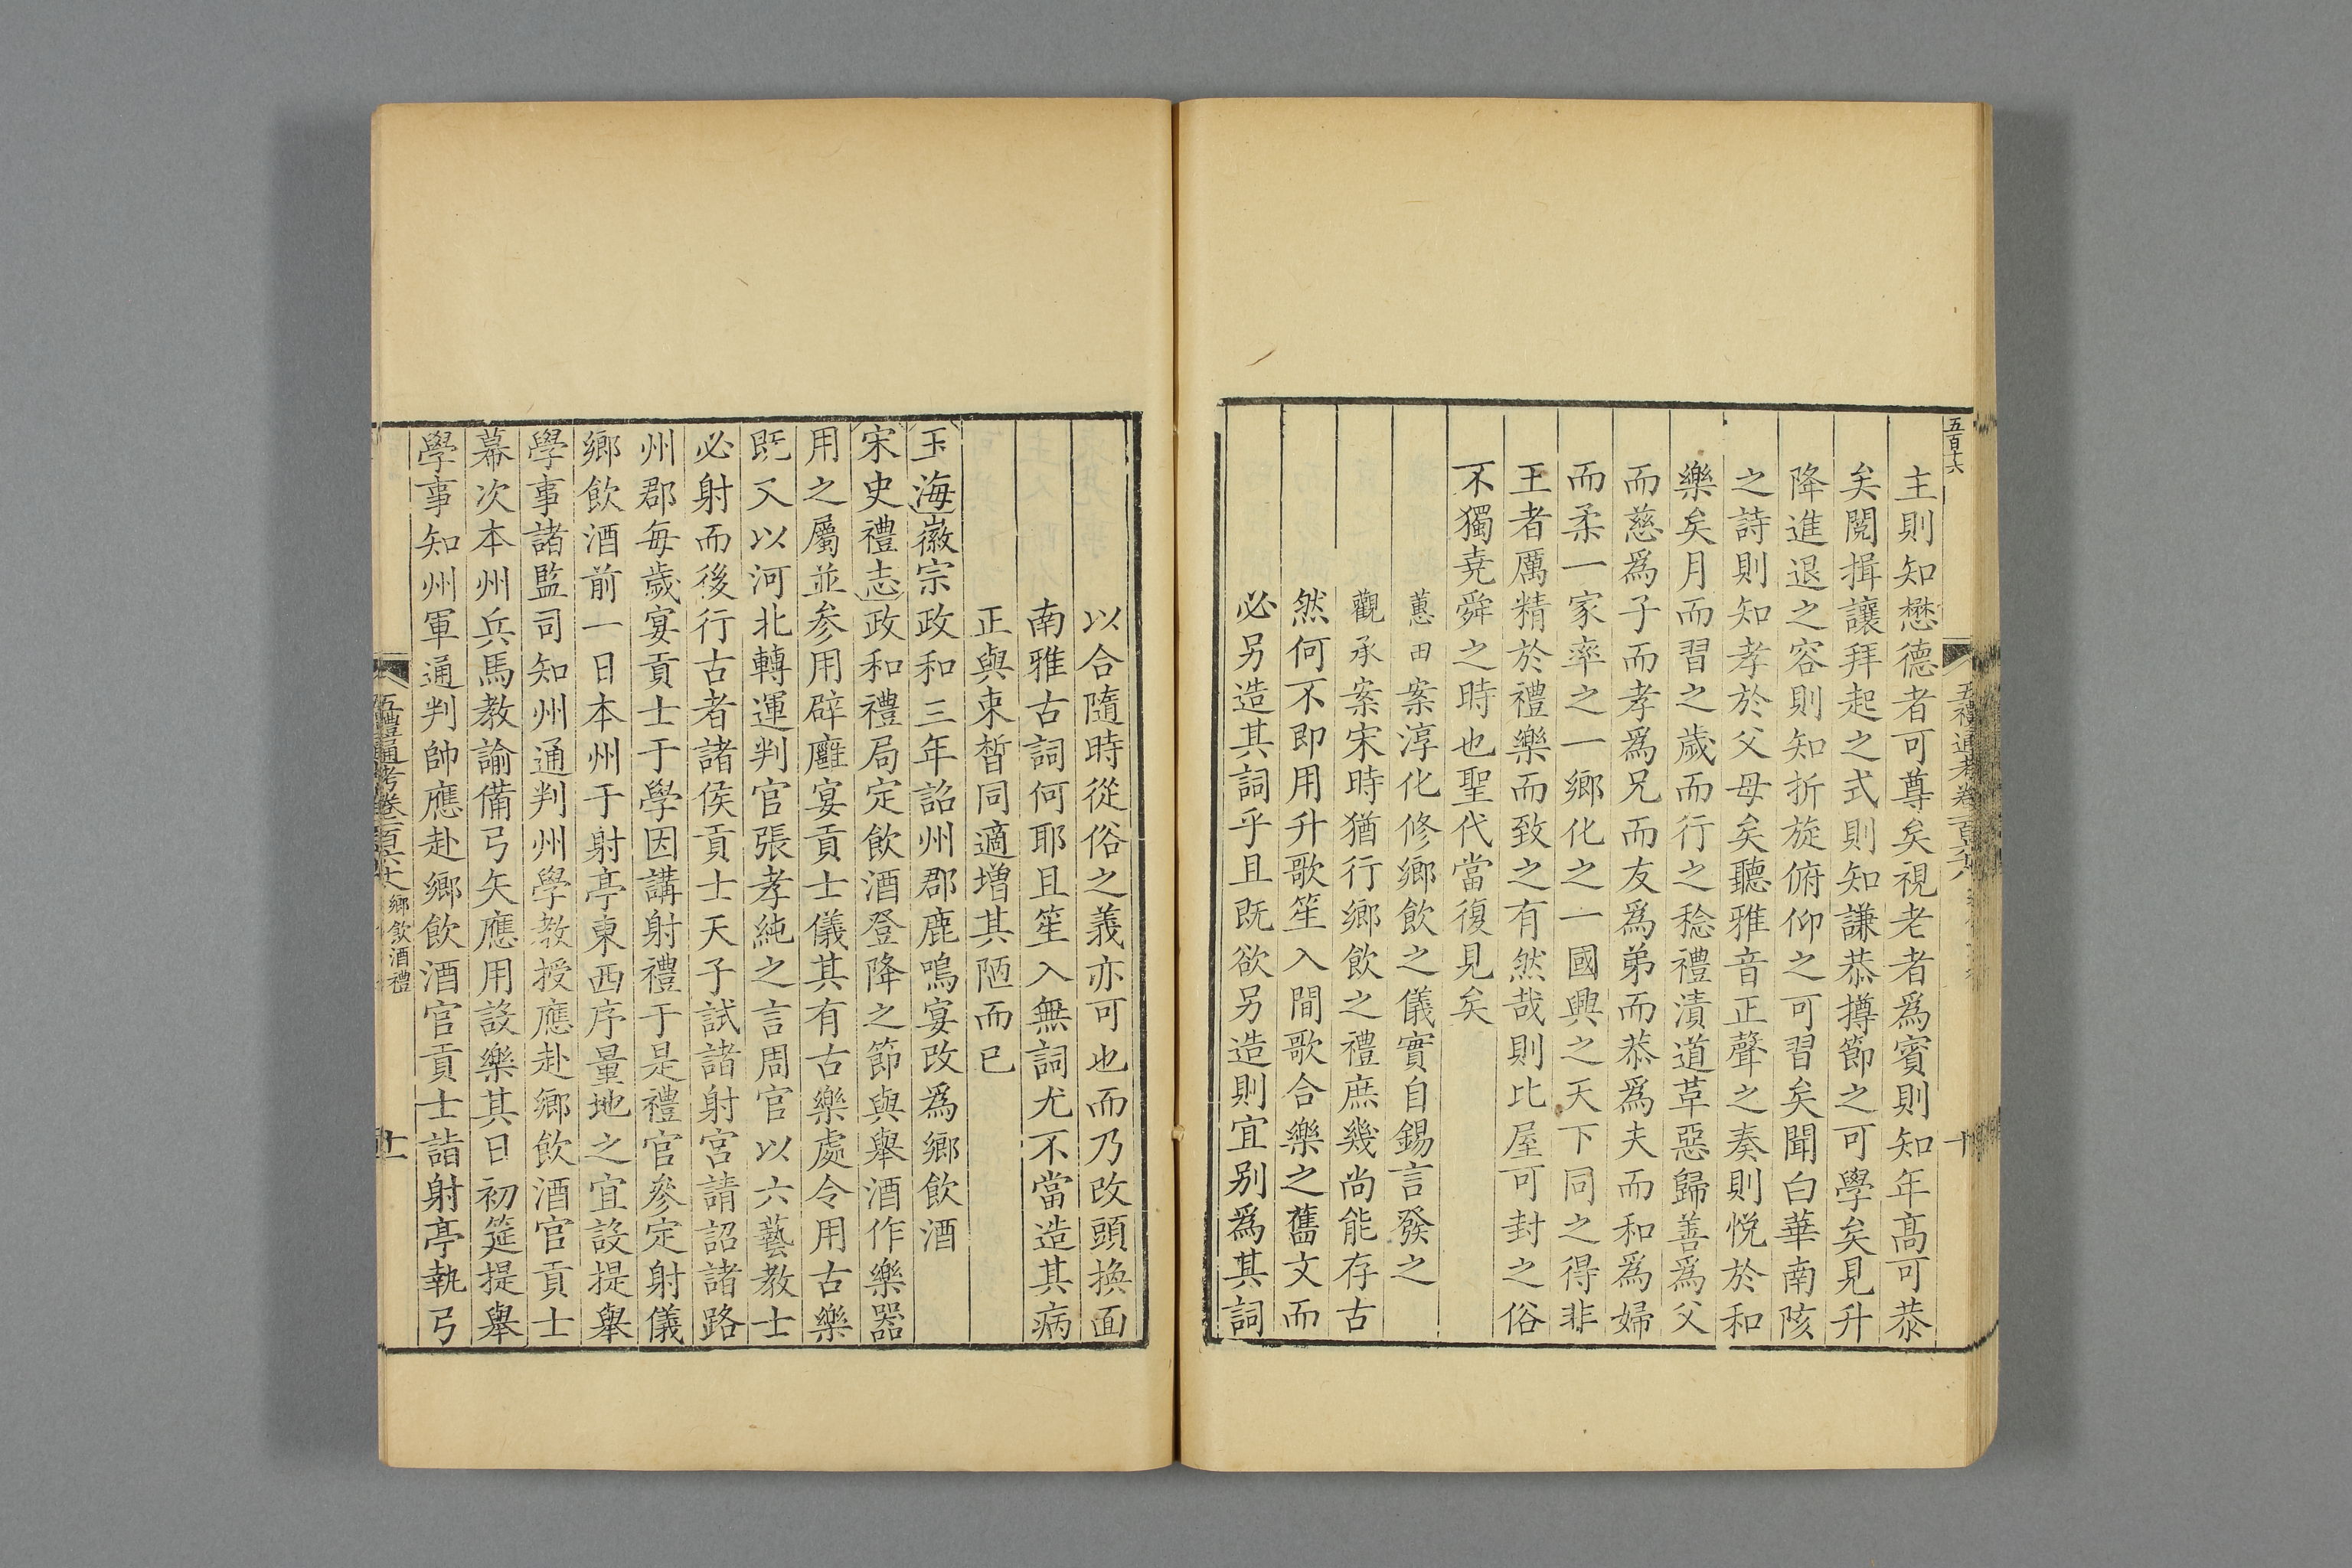 五百十六
主則知懋德者可尊矣視老者爲賓則知年高可恭
矣閱揖讓拜起之式則知謙恭撙節之可學矣見升
降進退之容則知折旋俯仰之可習矣聞白華南陔
之詩則知孝於父母矣聽雅音正聲之奏則悅於和
樂矣月而習之歲而行之稔禮漬道革惡歸善爲父
而慈爲子而孝爲兄而友爲弟而恭爲夫而和爲婦
而柔一家率之一鄉化之一國興之天下同之得非
王者厲精於禮樂而致之有然哉則比屋可封之俗
不獨堯舜之時也聖代當復見矣
蕙田案淳化修鄉飲之儀實自錫言發之
觀承案宋時猶行鄉飲之禮庶幾尚能存古
然何不即用升歌笙入間歌合樂之舊文而
必另造其詞乎且既欲另造則宜别爲其詞
以合隨時從俗之義亦可也而乃改頭換面
南雅古詞何耶且笙入無詞尤不當造其病
正與束晳同適增其陋而已
玉海徽宗政和三年詔州郡鹿鳴宴改爲鄉飲酒
宋史禮志政和禮局定飲酒登降之節與舉酒作樂器
用之屬並参用辟廱宴貢士儀其有古樂處令用古樂
既又以河北轉運判官張孝純之言周官以六藝教士
必射而後行古者諸侯貢士天子試諸射宮請詔諸路
州郡每歲宴貢士于學因講射禮于是禮官參定射儀
鄉飲酒前一日本州于射亭東西序量地之宜設提舉
學事諸監司知州通判州學教授應赴鄉飲酒官貢士
幕次本州兵馬教諭備弓矢應用設樂其日初筵提舉
學事知州軍通判帥應赴鄉飲酒官貢士詣射亭執弓
五禮通考卷一百六十八 鄉飲酒禮 十一